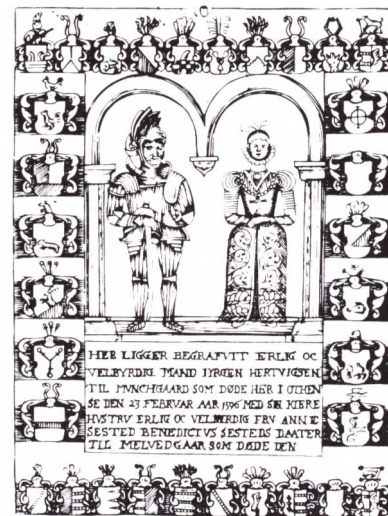 HER LIGGER BEGRAFVTT ERLIG OC
VELBYRDIG MAND IYRGEN HERTVIGSEN
TIL MVNCHGAARD SOM DØDE HER I OTHEN
SE DEN 23 FEBRVAR AAR 1596 MED SIN KIERE
HVSTRV ERLIG OC VELBYRDIG FRV ANNE
SESTED BENEDICTVS SESTEDS DAATER
TIL MELVEDGAAR SOM DØDE DEN